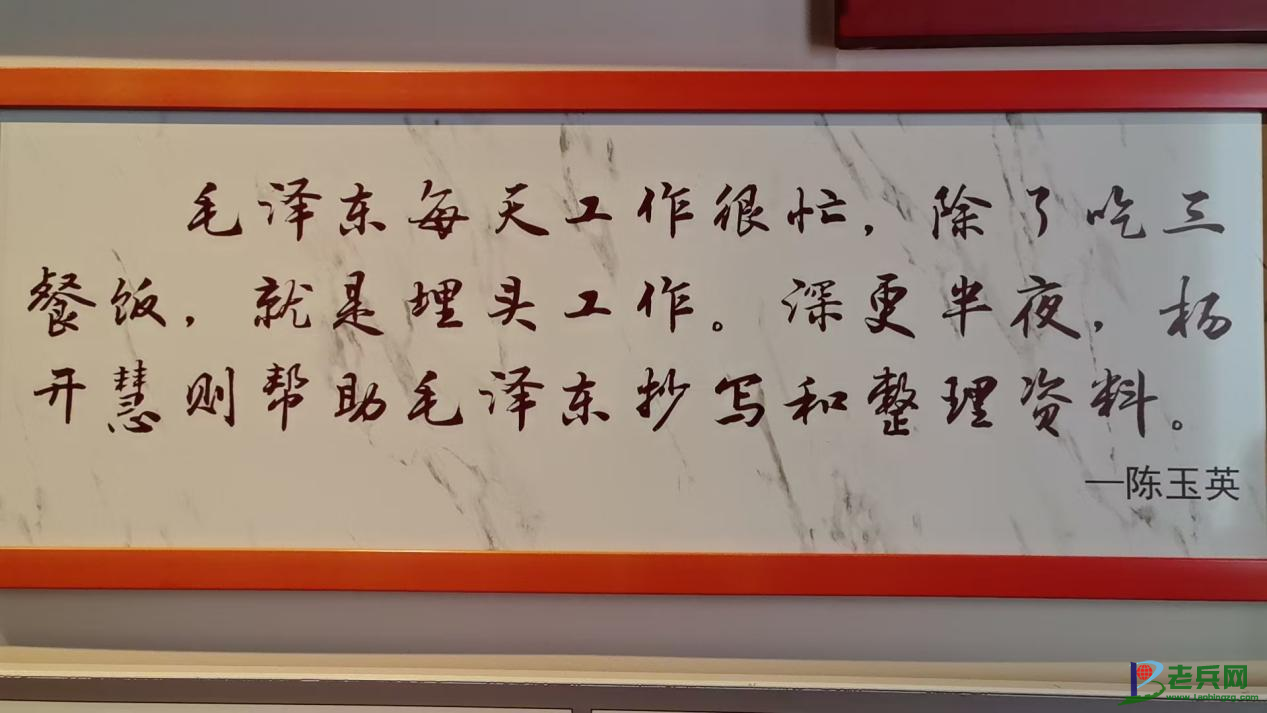 毛泽东每天工作很忙，除了吃三
餐饭，就是埋头工作。深更半夜，杨
开慧则帮助毛泽东抄写和整理资料。
—陈玉英
老兵网
www.laobingzg.com